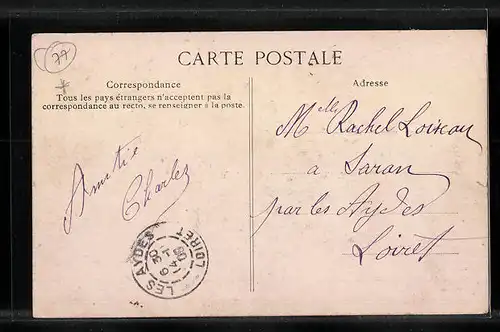 77
CARTE POSTALE
Correspondance
Tous les pays étrangers n'acceptent pas la
correspondance au recto, se renseigner à la poste.
Amitié
Charles
Adresse
Mlle Rachel Loiseau
a Saran
par les Aydes
Loiret
LES AYDES
LOIRET